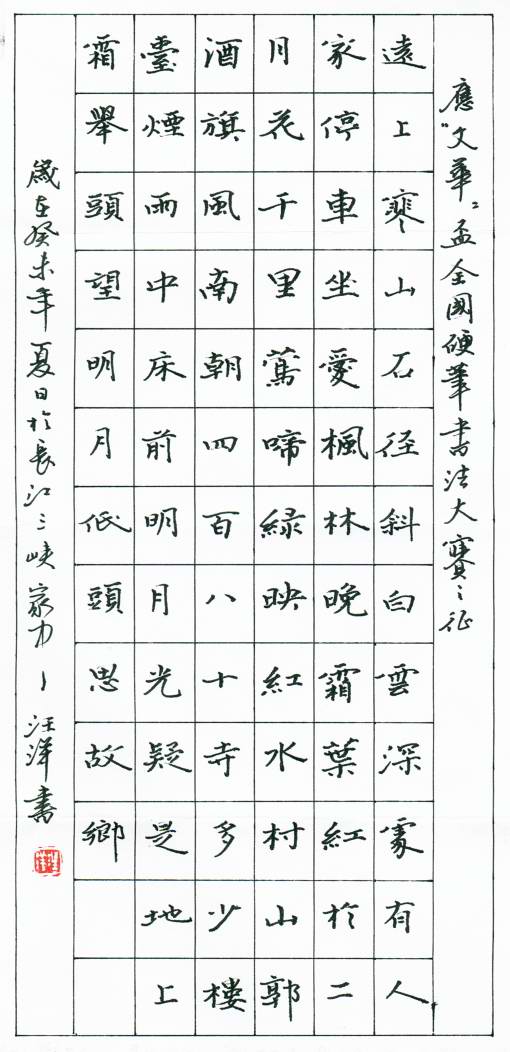 應"文華"盃全國硬筆書法大賽之征
遠上寒山石径斜白雲深處有人
家停車坐愛楓林晚霜葉紅於二
月花千里鶯啼緑映紅水村山郭
酒旗風南朝四百八十寺多少楼
臺煙雨中床前明月光疑是地上
霜舉頭望明月低頭思故鄉
歲在癸未年夏日於長江三峡 汪洋書